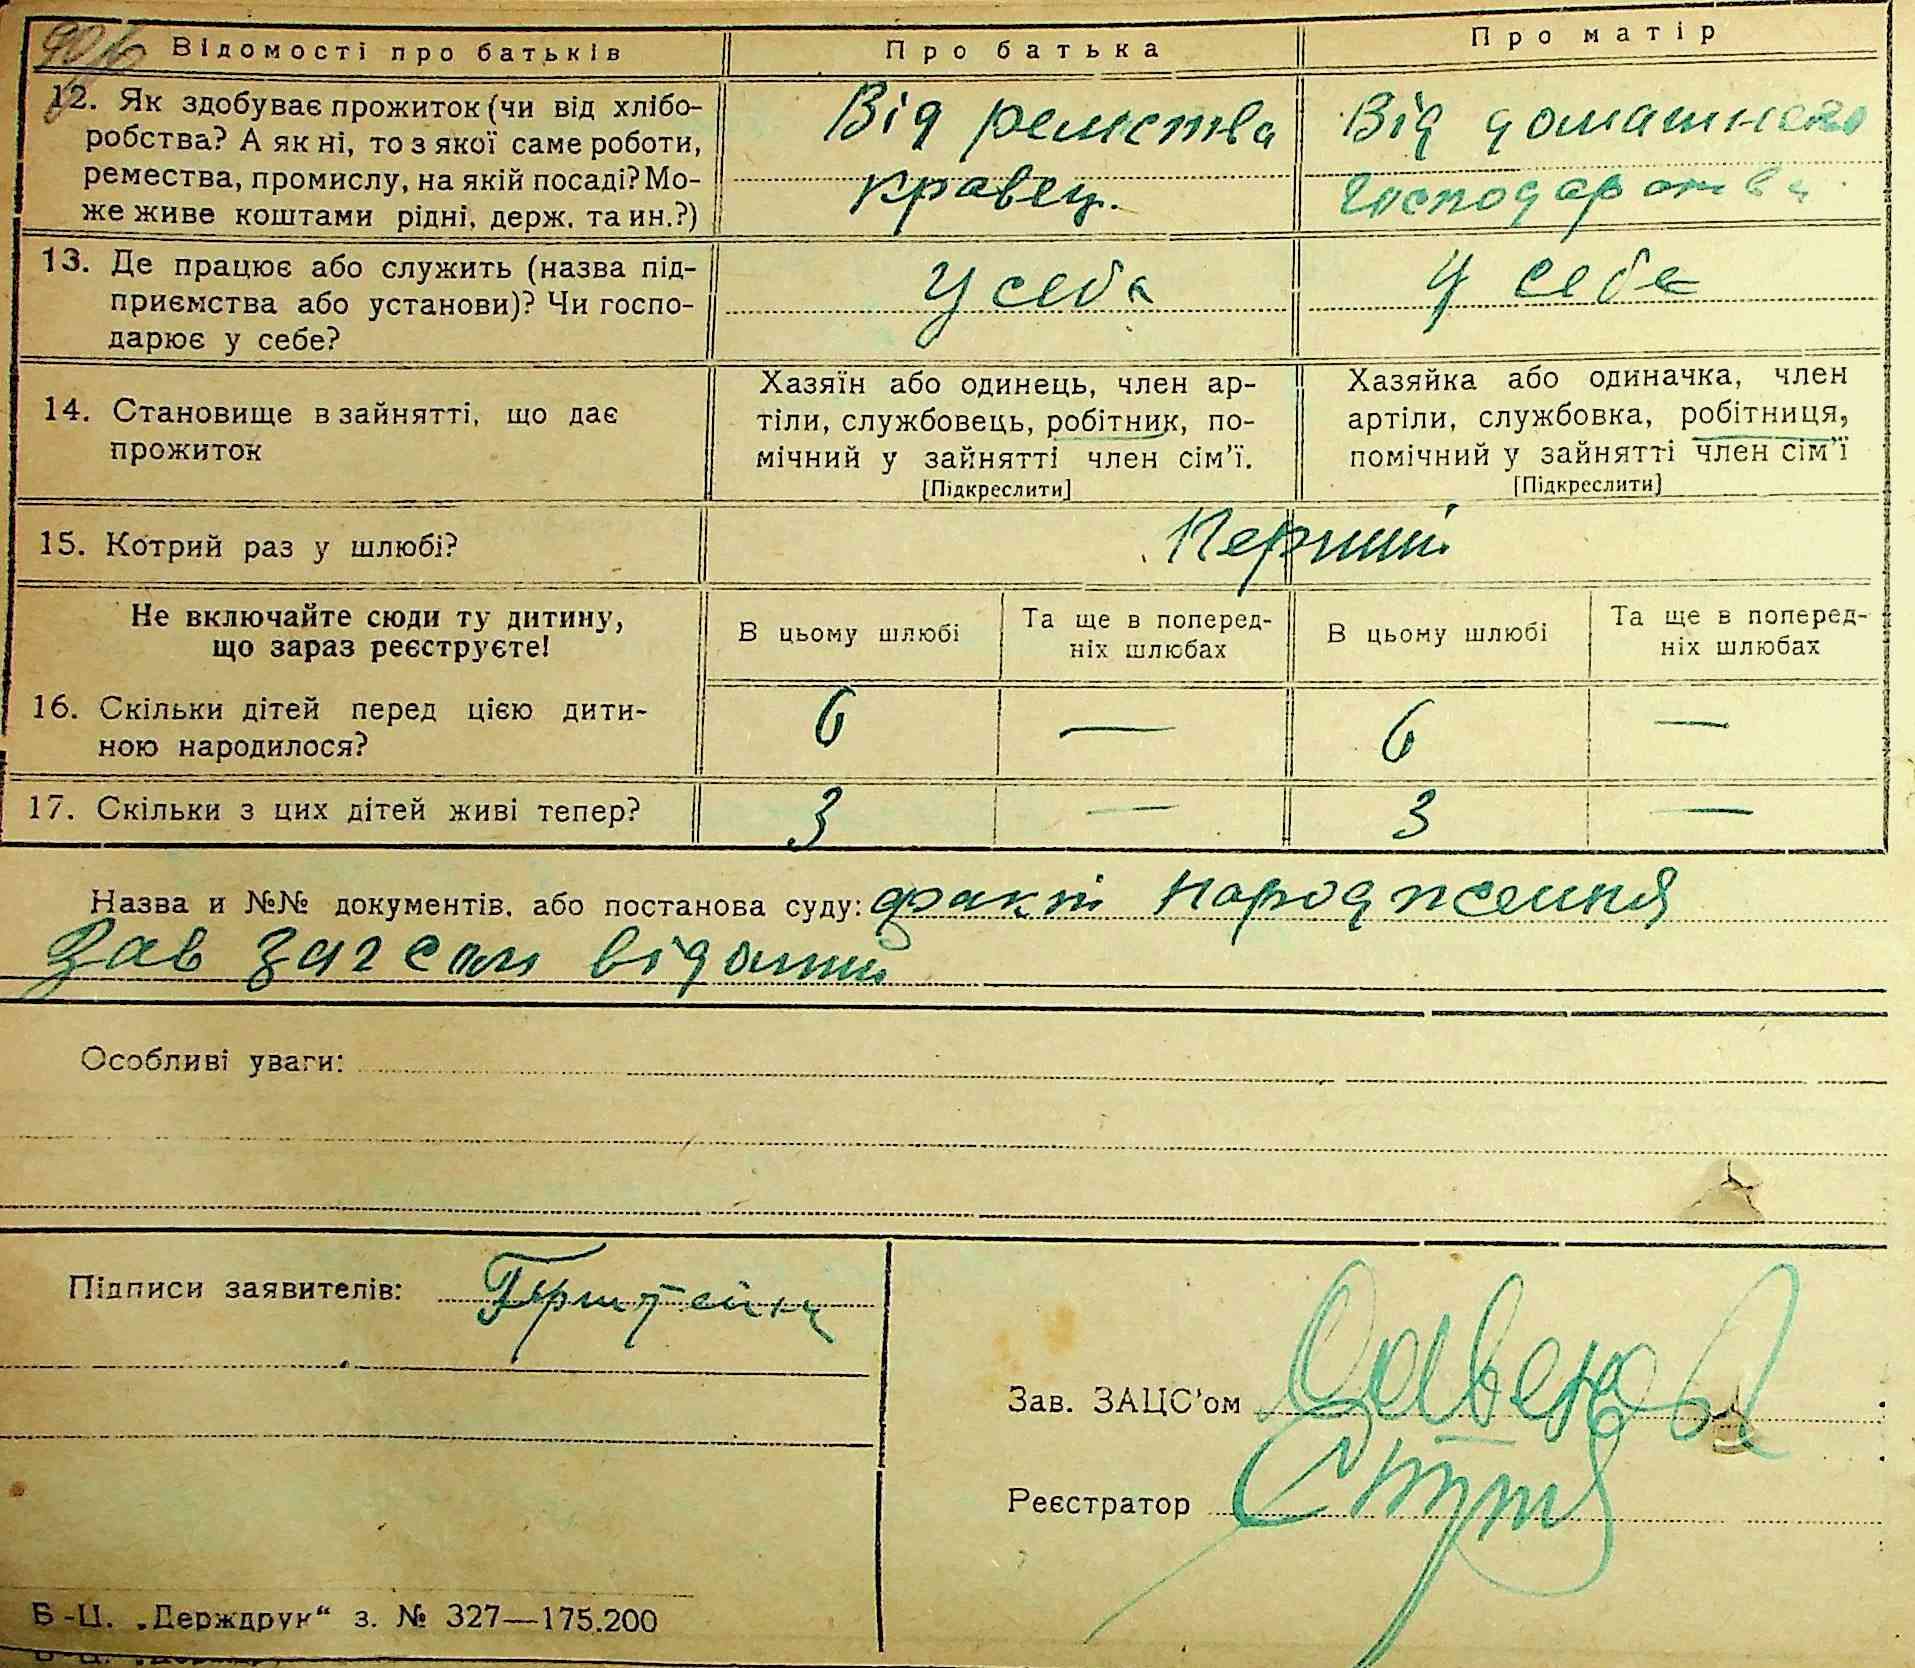 Відомості про батьків
Про батька
Про матір
12. Як здобуває прожиток (чи від хлібо-
робства? А як ні, то з якої саме роботи,
ремества, промислу, на якій посаді? Мо-
же живе коштами рідні, держ. та ин.?)
Від ремества
кравец.
Від домашнего
господарства
13. Де працює або служить (назва під-
приємства або установи)? Чи госпо-
дарює у себе?
У себе
У себе
14. Становище в зайнятті, що дає
прожиток
Хазяїн або одинець, член ар-
тіли, службовець, робітник, по-
мічний у зайнятті член сім'ї.
[Підкреслити]
Хазяйка або одиначка, член
артіли, службовка, робітниця,
помічний у зайнятті член сім'ї
[Підкреслити]
15. Котрий раз у шлюбі?
Перший
Не включайте сюди ту дитину,
що зараз реєструєте!
В цьому шлюбі
Та ще в поперед-
ніх шлюбах
В цьому шлюбі
Та ще в поперед-
ніх шлюбах
16. Скільки дітей перед цією дити-
ною народилося?
6
—
6
—
17. Скільки з цих дітей живі тепер?
3
—
3
—
Назва и №№ документів. або постанова суду: факт народження
Зав загсом відомий
Особливі уваги:
Підписи заявителів:
Зав. ЗАЦС'ом
Реєстратор
Б-Ц. „Держдрук“ з. № 327—175.200